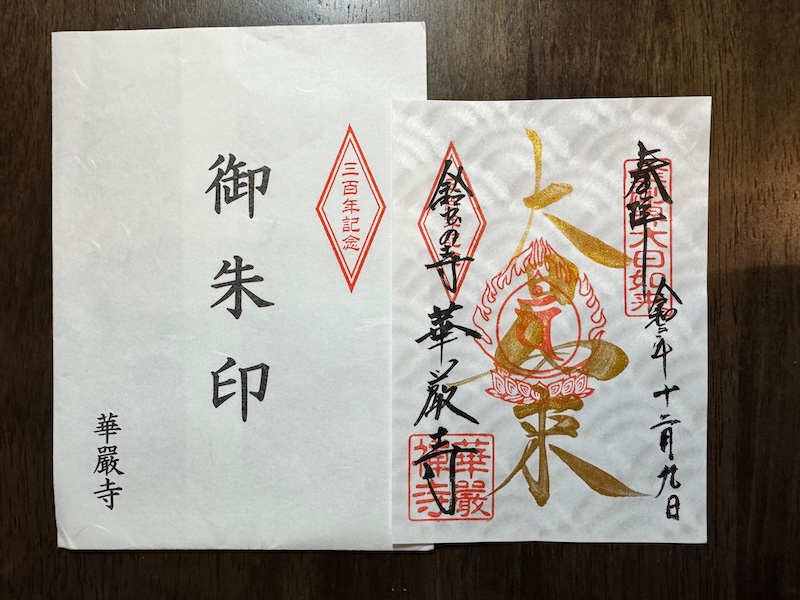 三百年記念
御朱印
華嚴寺
奉拝
令和二年十二月九日
大日如来
鈴虫の寺 華厳寺
華嚴禅寺